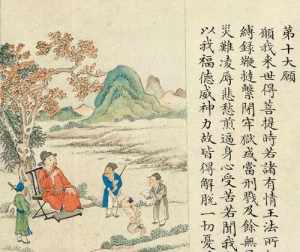 第十大願
願我来世得菩提時若諸有情王法所
縛録鞭撻繫閉牢獄或當刑戮及餘無
災難凌辱悲愁煎逼身心受苦若聞我
以我福德威神力故皆得解脫一切憂